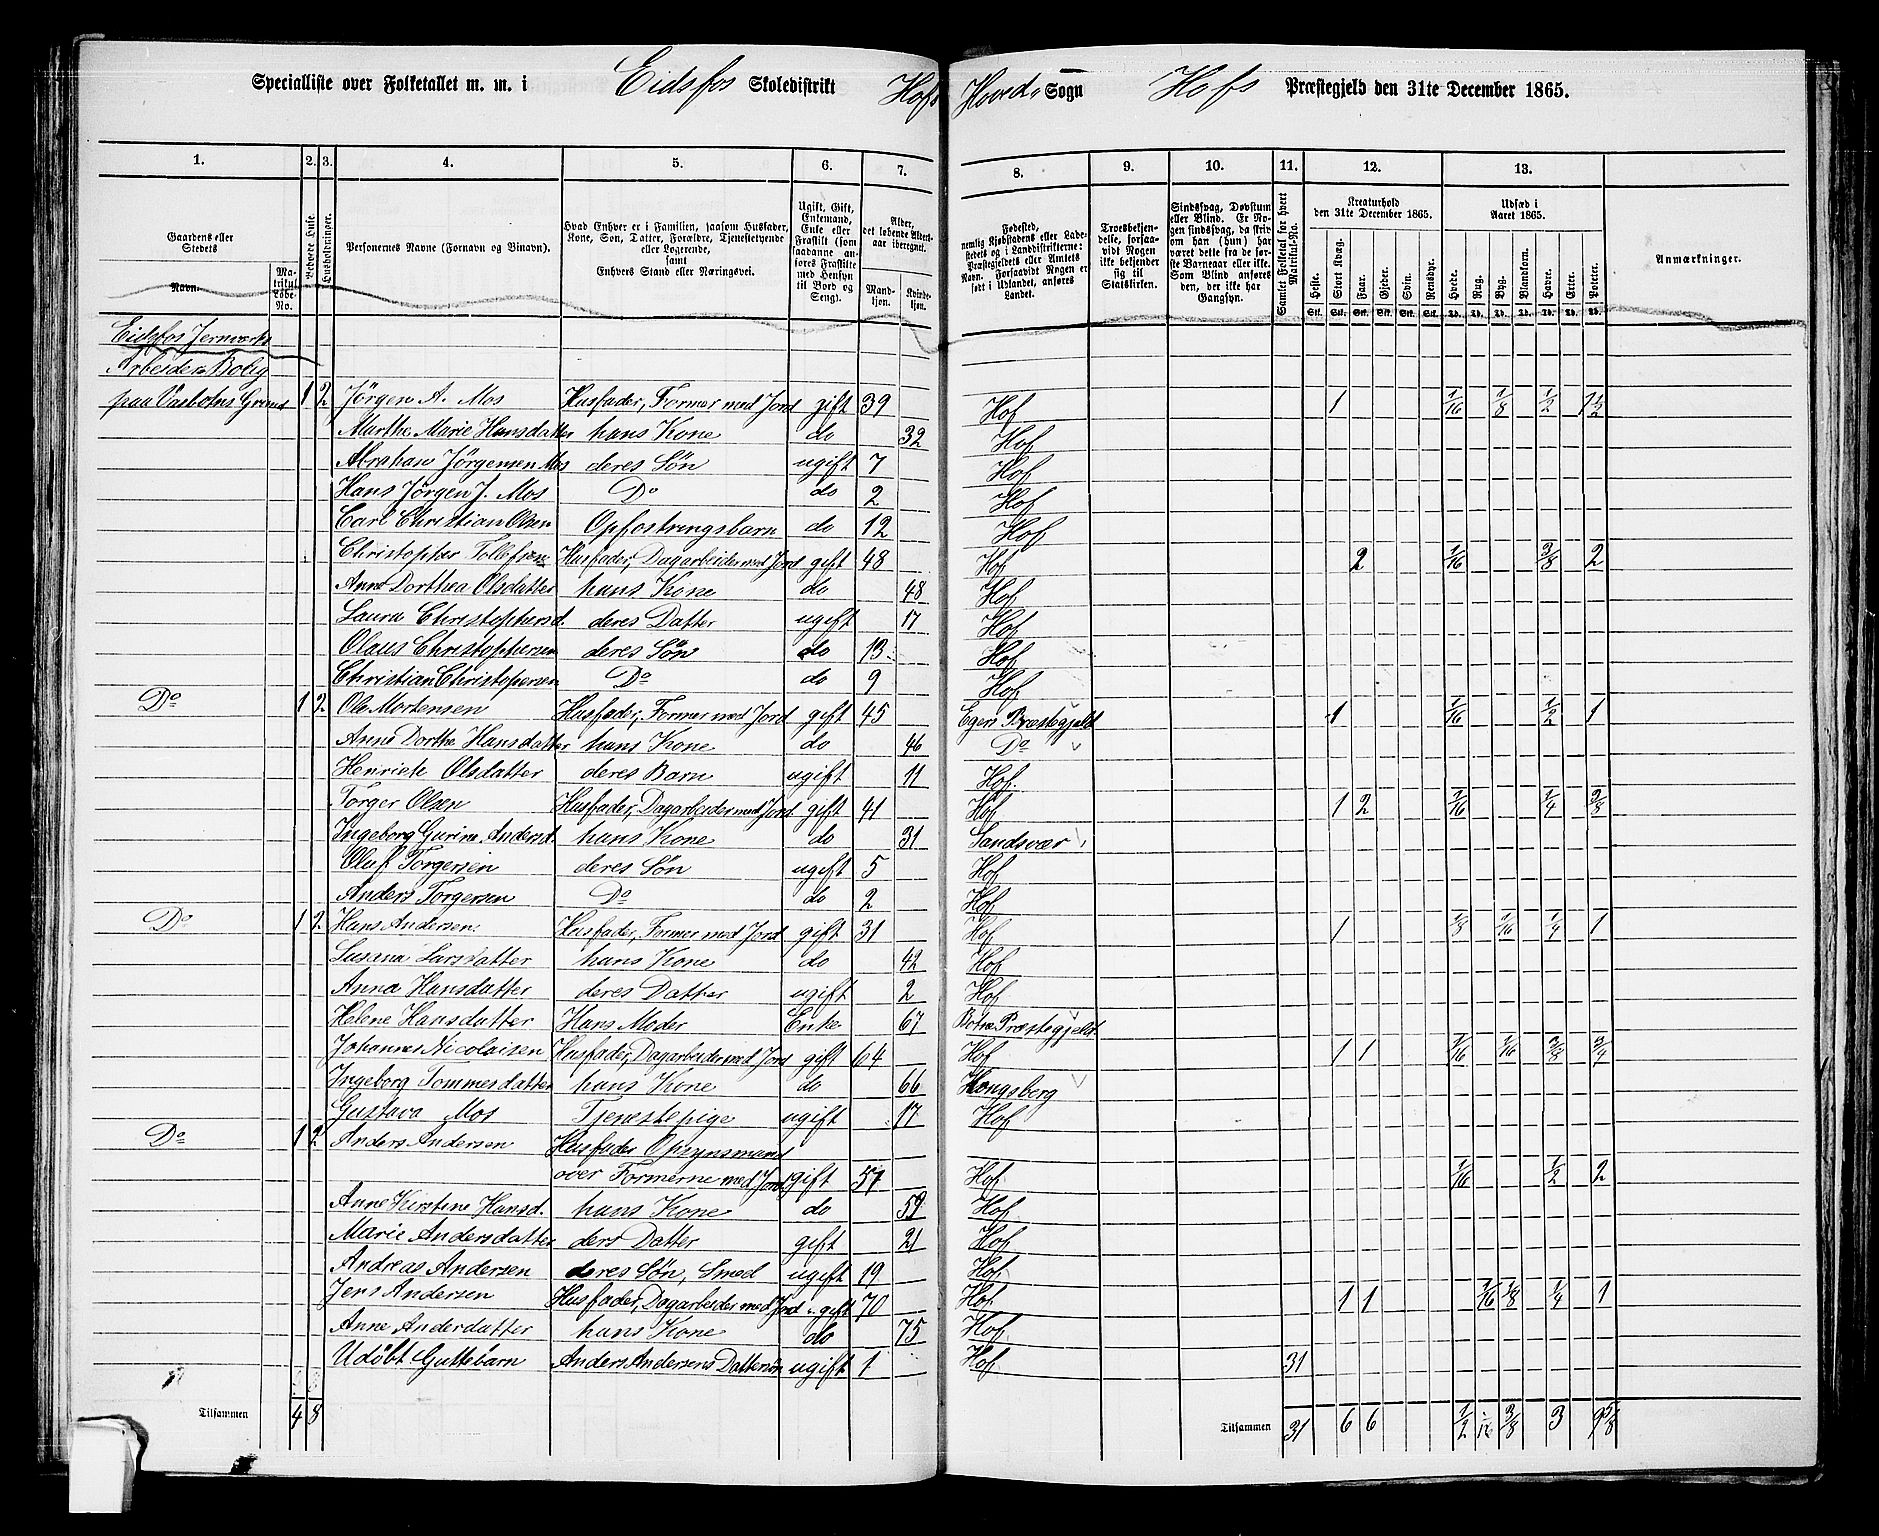 Specialliste over Folketallet m. m. i Eidsfos Skoledistrikt Hofs Hoved Sogn Hofs Præstegjeld den 31te December 1865.
1. 2. 3. 4. 5. 6. 7. 8. 9. 10. 11. 12. 13.
Gaardens eller Stedets
Navn.
Matrikul Løbe-No.
Beboede Huse.
Husholdninger.
Personernes Navne (Fornavn og Binavn).
Hvad Enhver er i Familien, saasom Husfader, Kone, Søn, Datter, Forældre, Tjenestetyende eller Logerende, samt Enhvers Stand eller Næringsvei.
Ugift, Gift, Enkemand, Enke eller Fraskilt (som saadanne anføres Fraskilte med Hensyn til Bord og Seng).
Alder, det løbende Alders-aar iberegnet.
Mandkjøn.
Kvindekjøn.
Fødested, nemlig Kjøbstadens eller Ladestedets og i Landdistrikterne: Præstegjeldets eller Amtets Navn. Forsaavidt Nogen er født i Udlandet, anføres Landet.
Troesbekjendelse, forsaavidt Nogen ikke bekjender sig til Statskirken.
Sindssvag, Døvstum eller Blind. Er Nogen sindssvag, da skrives om han (hun) har været dette fra de første Barneaar eller ikke. Som Blind anføres den, der ikke har Gangsyn.
Samlet Folketal for hvert Matrikul-No.
Kreaturhold den 31te December 1865.
Heste. Stort Kvæg. Faar. Gjeder. Svin. Rensdyr.
Udsæd i Aaret 1865.
Hvede. Rug. Byg. Blandkorn. Havre. Erter. Poteter.
Anmærkninger.
Eidsfos Jernværks
Arbeider Bolig
paa Vasbotns Grund 1 2 Jörgen A. Mos Husfader, Former med Jord gift 39 Hof 1 1/16 1/8 1/2 1 1/2
Marthe Marie Hansdatter hans Kone do 32 Hof
Abraham Jörgensen Mos deres Søn ugift 7 Hof
Hans Jörgen J. Mos Do do 2 Hof
Carl Christian Olsen Opfostringsbarn do 12 Hof
Christopher Tollefsen Husfader, Dagarbeider med Jord gift 48 Hof 2 1/16 3/8 2
Anne Dorthea Olsdatter hans Kone do 48 Hof
Laura Christophersd. deres Datter ugift 17 Hof
Olaus Christophersen deres Søn do 13 Hof
Christian Christopersen Do do 9 Hof
Do 1 2 Ole Mortensen Husfader, Former med Jord gift 45 Egers Præstegjeld 1 1/16 1/2 1
Anne Dorthe Hansdatter hans Kone do 46 Do
Henriete Olsdatter deres Barn ugift 11 Hof
Torger Olsen Husfader, Dagarbeider med Jord gift 41 Hof 1 2 1/16 1/4 3/8
Ingeborg Gurine Andersd. hans Kone do 31 Sandsvær
Oluf Torgersen deres Søn ugift 5 Hof
Anders Torgersen Do do 2 Hof
Do 1 2 Hans Andersen Husfader, Former med Jord gift 31 Hof 1 1/8 1/16 1/4 1
Susana Larsdatter hans Kone do 42 Hof
Anna Hansdatter deres Datter ugift 2 Hof
Helene Hansdatter Hans Moder Enke 67 Botne Præstegjeld
Johannes Nicolaisen Husfader, Dagarbeider med Jord gift 64 Hof 1 1 1/16 1/16 3/8 3/4
Ingeborg Tommesdatter hans Kone do 66 Kongsberg
Gustava Mos Tjenestepige ugift 17 Hof
Do 1 2 Anders Andersen Husfader Opsynsmand
over Formerne med Jord gift 57 Hof 1/16 1/2 2
Anne Kirstine Hansd. hans Kone do 59 Hof
Marie Andersdatter ders Datter gift 21 Hof
Andreas Andersen deres Søn, Smed ugift 19 Hof
Jens Andersen Husfader, Dagarbeider med Jord gift 70 Hof 1 1 1/16 1/8 1/4 1
Anne Anderdatter hans Kone do 75 Hof
Udöbt Guttebarn Anders Andersens Dattersön ugift 1 Hof 31
Tilsammen 4 8 Tilsammen 31 6 6 1/2 1/16 3/8 3 9 5/8